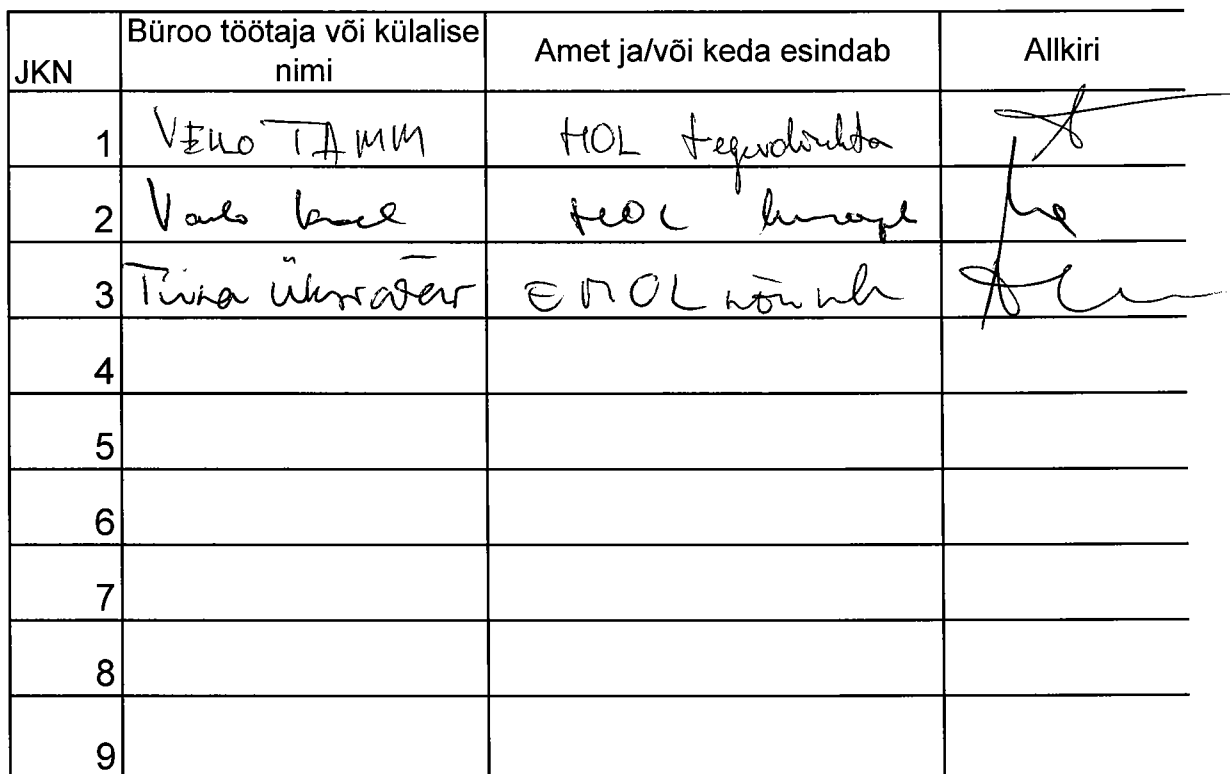 JKN Büroo töötaja või külalise nimi Amet ja/või keda esindab Allkiri
1 VELLO TAMM HOL tegevdirektor
2 HOL
3 Tiina EMOL nõunik
4
5
6
7
8
9